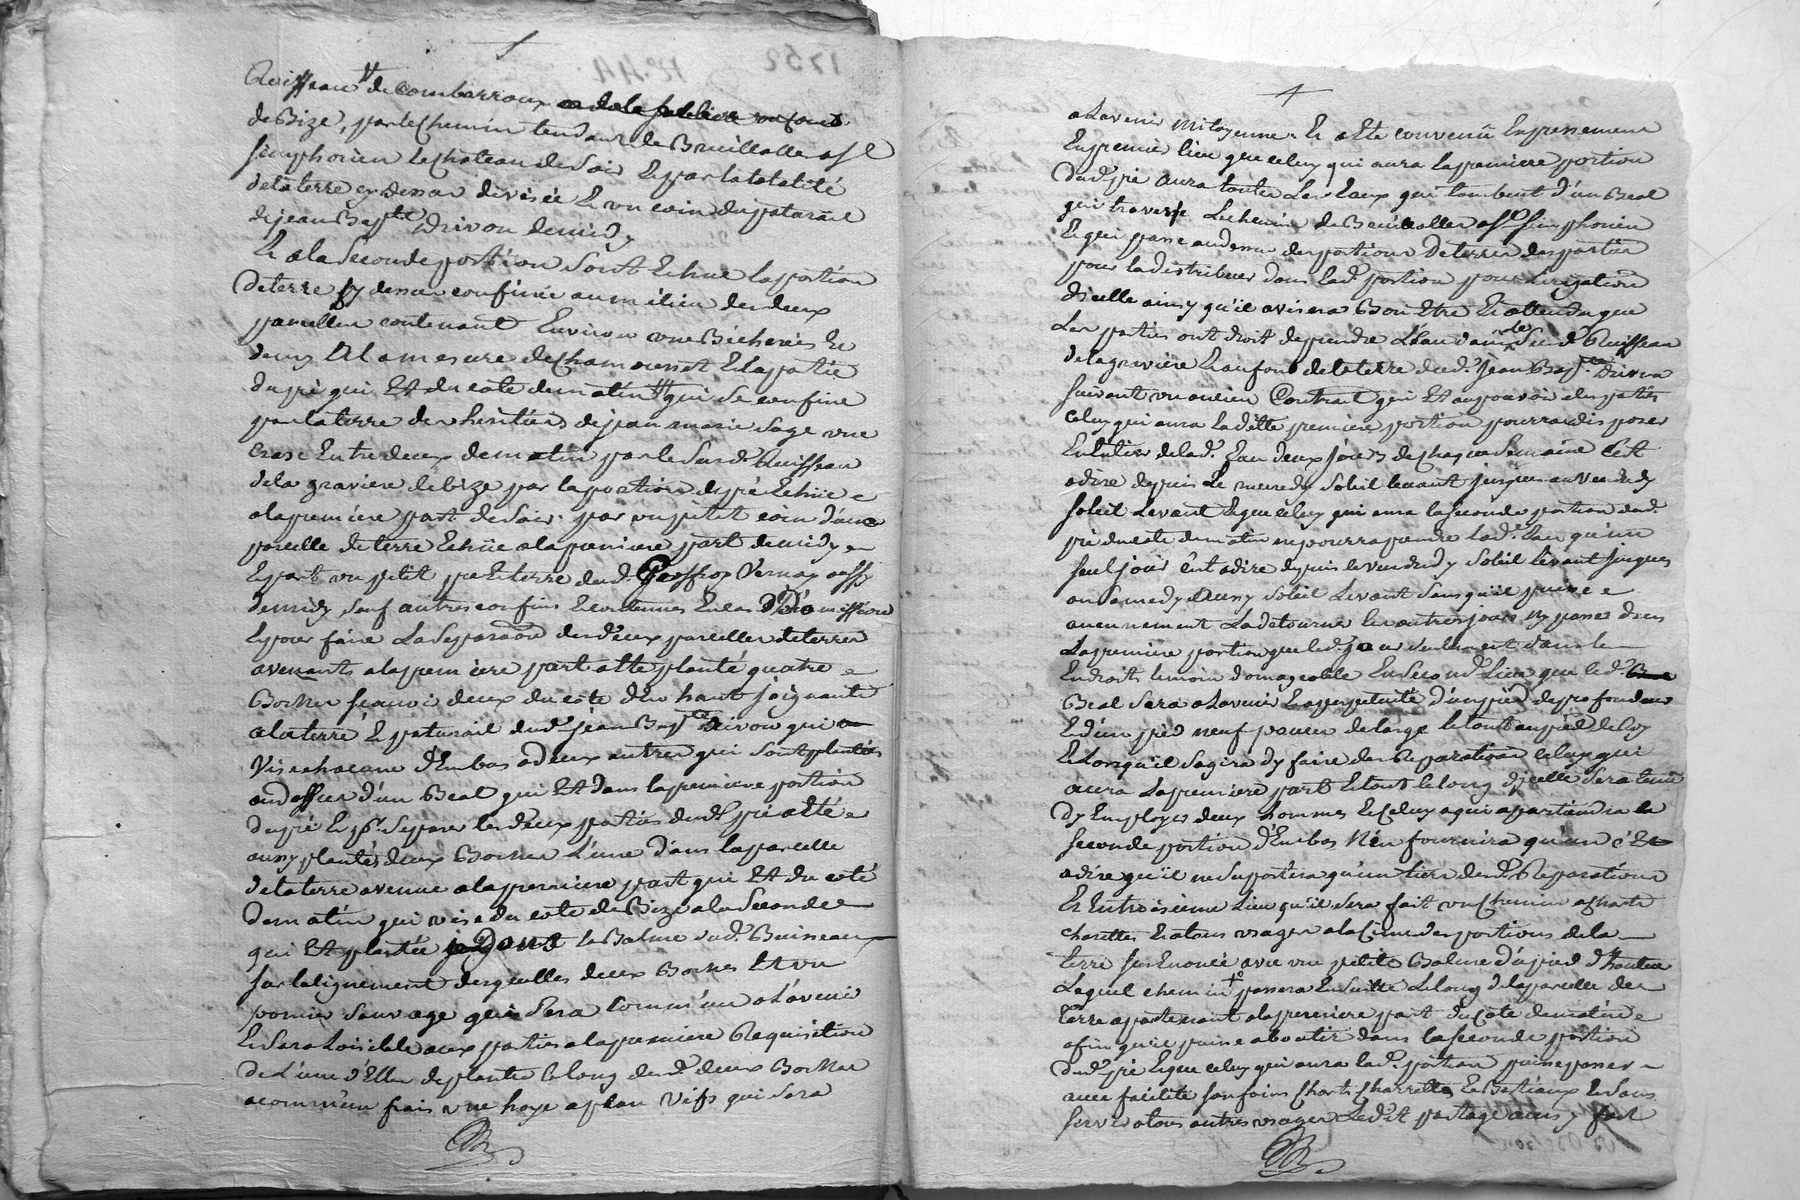 1752
Ruisseau de combarroux
de Bize, par le Chemin tendant de Bruillolles a st
simphorien le chateau de soir Et par la totalité
de la terre cy dessus divisée Et un coin du paturail
de jean Bapte Drivon de midy
Et a la seconde portion sont Echue la portion
de terre cy dessus confinée au milieu des deux
parcelles contenant Environ une Bicherée Et
demy A la mesure de Chamousset Et la partie
du pré qui Et du coté de matin qui se confine
par la terre des heritiers de jean marie Sage une
Entre deux de matin par le susd. Ruisseau
de la graviere de bize par la portion de pré Echüe
a la premiere part de soir par un petit coin d'une
parcelle de terre Echüe a la premiere part de midy
Et part un petit pré Et terre dud. Geoffroy Vernay aussy
de midy sauf autres confins
Et pour faire La Separaon des deux parcelles de terres
avenants a la premiere part a Eté planté quatre
Bornes scavoir deux du coté d'En haut joignants
a la terre Et paturail dud. jean Bapte Drivon qui
Vise chacune d'En bas a deux autres qui sont plantés
au dessus d'un Beal qui Et dans la premiere portion
du pré Et pr. Separer les deux parties dud. pré a Eté
aussy plantés deux Bornes L'une dans la parcelle
de la terre avenue a la premiere part qui Et du coté
de matin qui vise du coté de Bize a la Seconde
qui Et plantée dans la Balme dud. Ruisseau
sur l'alignement desquelles deux Bornes Et un
pomier sauvage qui Sera Commun a L'avenir
Et Sera Loisible aux parties a la premiere Requisition
de L'une d'Elles de planter le long desd. deux Bornes
a commun frais une haye a plan Vifs qui Sera
a L'avenir mitoyenne. Et a Eté convenû Expressement
En premier lieu que celuy qui aura la premiere portion
dud. pré aura toutes Les Eaux qui tombent d'un Beal
qui traverse Le chemin de Bruillolles a st simphorien
Et qui passe au dessus des portions de terres des parties
pour la distribuer dans lad. portion pour L'irrigation
d'icelle ainsy qu'il avisera Bon Etre Et attendu que
Les parties ont droit de prendre L'eau dans le susd. Ruisseau
de la graviere Et au fond de la terre dud. jean Bapte Drivon
suivant un ancien Contrat qui Et au pouvoir des parties
celuy qui aura Ladite premiere portion pourra disposer
En Entier de lad. Eau deux jours de chaque Semaine C'Et
a dire depuis Le mercredy soleil levant jusques au Vendredy
soleil Levant Et que celuy qui aura la seconde portion dud.
pré du coté de matin ne pourra prendre Lad. Eau qu'un
seul jour c'Et a dire depuis le vendredy soleil levant jusques
au Samedy aussy soleil Levant Sans qu'il puisse
aucunement La detourner les autres jours ny passer dans
La premiere portion que led. jour seulement dans le
Endroits le moin domageable En Second Lieu que led.
Beal sera a L'avenir Et a perpetuité d'un pied de profondeur
Et d'un pied neuf pouces de large le tout au pied de Roy
Et Lorsqu'il S'agira d'y faire des Reparations celuy qui
aura La premiere part Et tout le long d'icelle Sera tenû
d'y Employer deux hommes Et Celuy a qui apartiendra la
seconde portion d'En bas N'en fournira qu'un c'Et
a dire qu'il ne Suportera qu'un tiers desd. Reparations
Et En troisieme Lieu qu'il Sera fait un Chemin a chars
charettes Et a tous usages a la Cime des portions de la
terre sus Enoncée avec une petite Balme d'un pied d'hauteur
Lequel chemin passera Ensuitte Le long de la parcelle de
Terre apartenant a la premiere part du Coté de matin
afin qu'il puisse aboutir dans la seconde portion
dud. pré Et que celuy qui aura lad. portion puisse passer
avec facilité son foin Chars Charrettes Et Bestiaux Et s'en
servir a tous autres usages Ledit partage ainsy fait